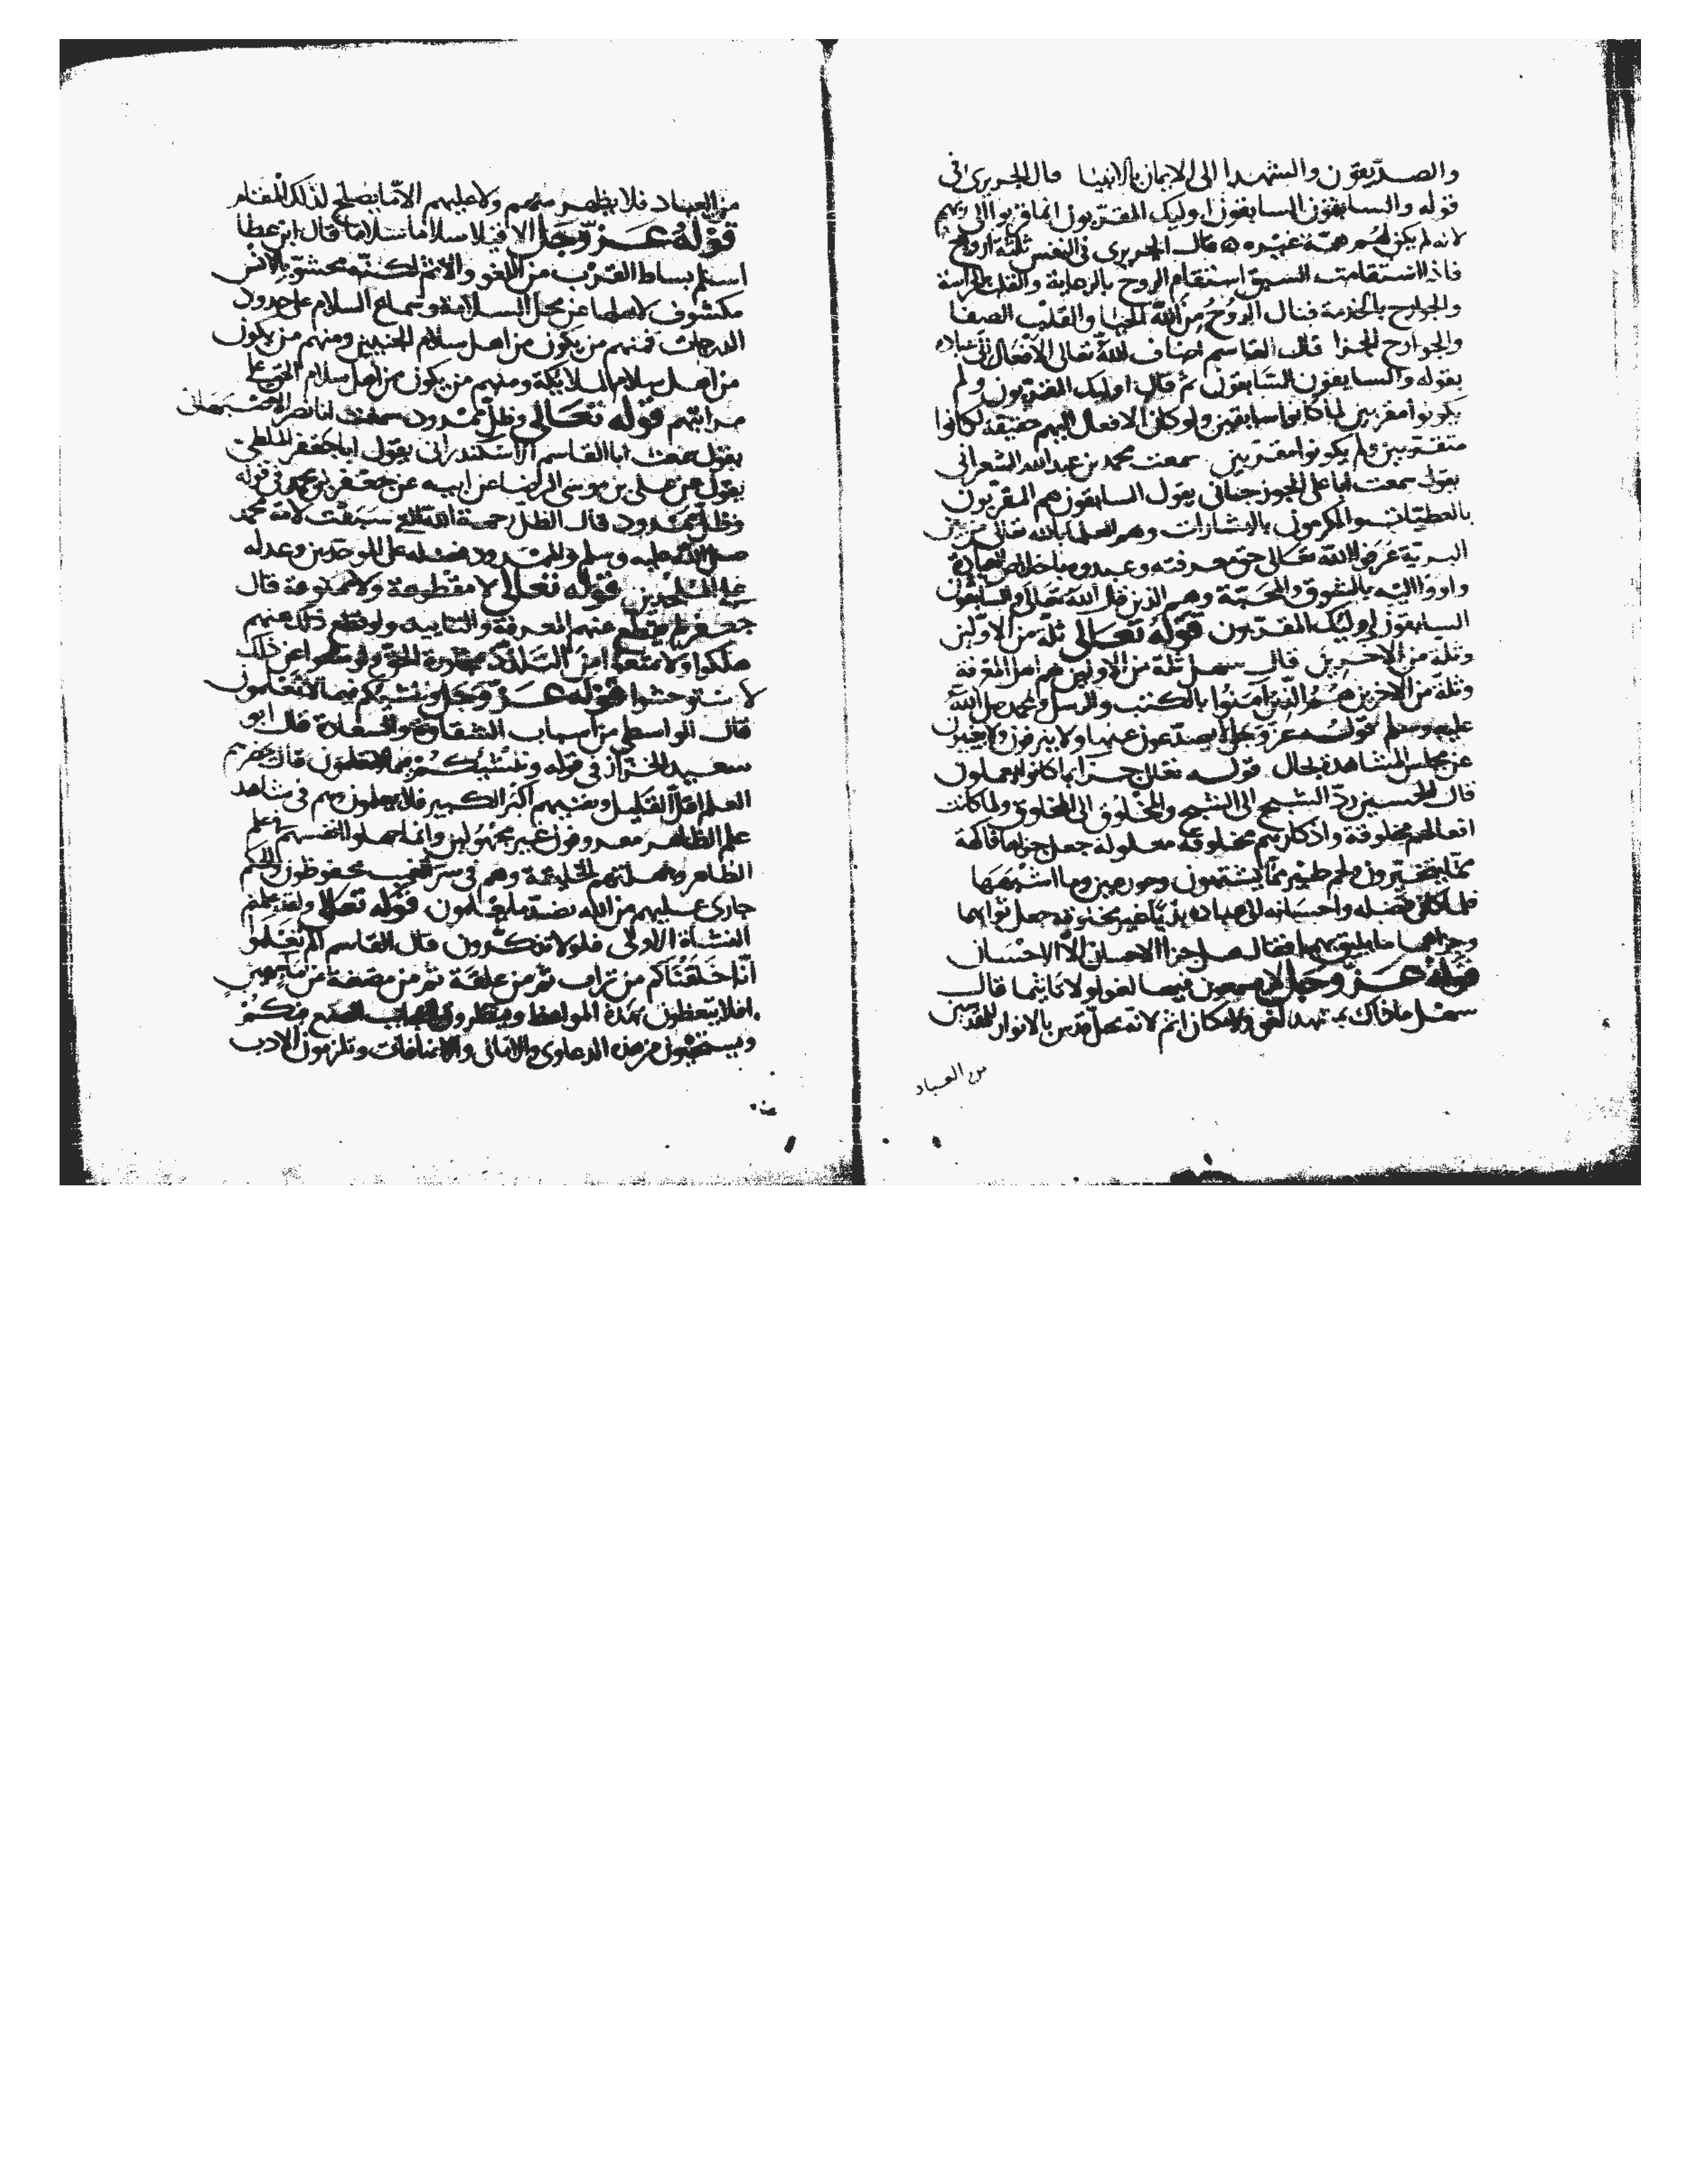 والصديقون والشهدا الى الايمان بالانبيا قال الجريرى فى
قوله والسابقون السابقون اوليك المقربون انما قربوا الى ربهم
لانه لم يكن لهم همة غيره قال الجريرى فى النفس ثلثة ارواح
فاذا استقامت السبق استقام الروح بالرعاية والقلب بالحراسة
والجوارح بالخدمة فنال الروح من الله الحيا والقلب الصفا
والجوارح الجزا قال القاسم اضاف الله تعالى الافعال الى عباده
بقوله والسابقون السابقون ثم قال اوليك المقربون ولم
يكونوا مقربين لما كانوا سابقين ولو كان الافعال اليهم حقيقة لكانوا
متقربين ولم يكونوا مقربين سمعت محمد بن عبد الله الشعرانى
يقول سمعت ابا على الجوزجانى يقول السابقون هم المقربون
بالعطيات والمكرمون بالبشارات وهم العلما بالله من بين
البرية عرفوا الله تعالى حق معرفته وعبدوه باخلاص العبادة
واووا اليه بالشوق والمحبة وهم الذين قال الله تعالى والسابقون
السابقون اوليك المقربون قوله تعالى ثلة من الاولين
وثلة من الاخرين قال سهل ثلة من الاولين هم اهل المعرفة
وثلة من الاخرين هم الذين امنوا بالكتب والرسل وبمحمد صلى الله
عليه وسلم قوله عز وجل لا يصدعون عنها ولا ينزفون ولا يغيبون
عن مجلس المشاهدة بحال قوله تعالى جزا بما كانوا يعملون
قال الحسين رد الشبح الى الشبح والمخلوق الى المخلوق ولما كانت
افعالهم مخلوقة واذكارهم مخلوقة معلولة جعل جزاها فاكهة
مما يتخيرون ولحم طير مما يشتهون وحور عين وما اشبهها
فلما كان فضله واحسانه الى عباده غير مخلوقة جعل ثوابهما
وجزاهما ما يليق بهما فقال هل جزا الاحسان الا الاحسان
قوله عز وجل لا يسمعون فيها لغوا ولا تاثيما قال
سهل ما ذاك بمشهد لغو ولا مكان اثم لانه محل قدس بالانوار للمقدسين
من العباد
من العباد فلا يظهر منهم ولا عليهم الا ما يصلح لذلك المقام
قوله عز وجل الا قيلا سلاما سلاما قال ابن عطا
اسلم بساط القرب من اللغو والاثم لكنه محشو بالانس
مكشوف لاهلها عن محل السلامة وسماع السلام على حدود
الدرجات فمنهم من يكون من اهل سلام المحبين ومنهم من يكون
من اهل سلام الملايكة ومنهم من يكون من اهل سلام الحق على
مراتبهم قوله تعالى وظل ممدود سمعت ابا نصر الاصبهانى
يقول سمعت ابا القاسم الاسكندرانى يقول ابا جعفر الملطى
يقول عن على بن موسى الرضا عن ابيه عن جعفر بن محمد فى قوله
وظل ممدود قال الظل رحمة الله التى سبقت لامة محمد
صلى الله عليه وسلم والممدود فضله على الموحدين وعدله
على الملحدين قوله تعالى لا مقطوعة ولا ممنوعة قال
جعفر لم يقطع عنهم المعرفة والتاييد ولو قطع ذلك عنهم
هلكوا ولا منعوا من التلذذ بمجاورة الحق ولو منعوا عن ذلك
لاستوحشوا قوله عز وجل وننشيكم فيما لا تعلمون
قال الواسطى من اسباب الشقاوة والسعادة قال ابو
سعيد الخراز فى قوله وننشيكم فيما لا تعلمون قال
العلم اقل القليل وغيبهم اكبر الكبير فلا يعلمون هم فى شاهد
علم الظاهر معروفون غير مجهولين وانما جهلوا انفسهم
الظاهر وهم فى سر الغيب محفوظون والحكم
جارى عليهم من الله بضد ما يعلمون قوله تعالى ولقد علمتم
النشاة الاولى فلولا تذكرون قال القاسم الم تعلموا
انا خلقناكم من تراب ثم من علقة ثم من مضغة من ما مهين
افلا يتعظون بهذه المواعظ وينظرون الصنع فيكم
ويستحيون من هذه الدعاوى والامانى والاضافات وتلزمون الادب